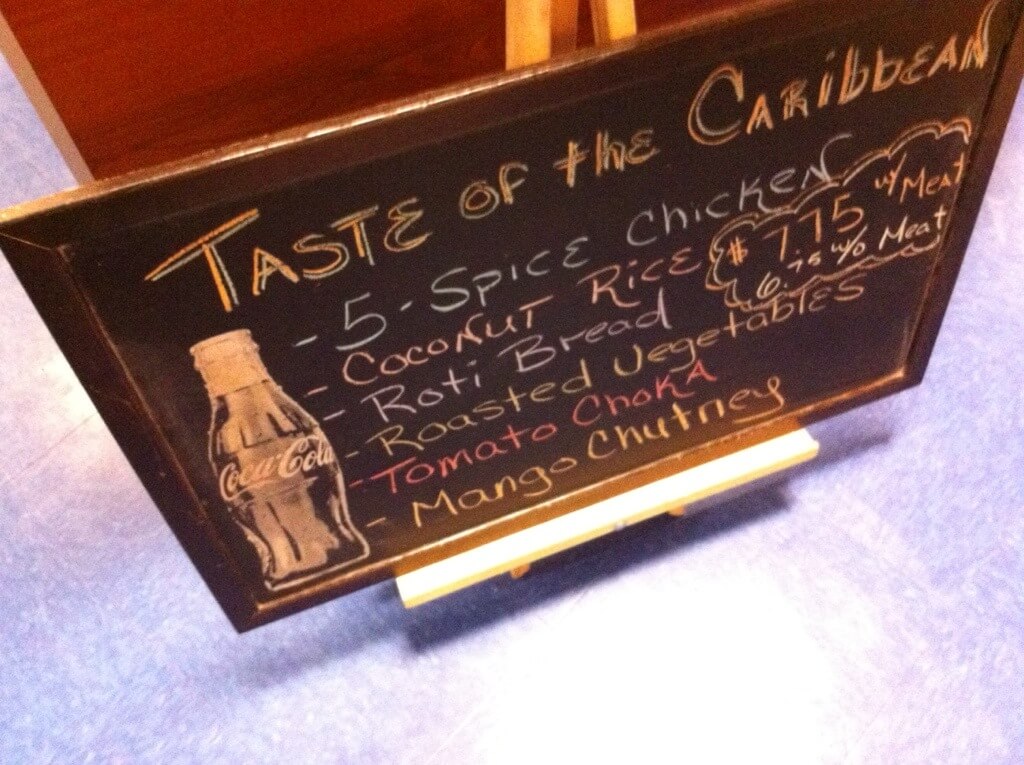 TASTE OF the CARibbEAN
- 5-Spice Chicken
- Coconut Rice
- Roti Bread
- Roasted Vegetables
- Tomato Choka
- Mango Chutney
$ 7.75 w/ Meat
6.75 w/o Meat
Coca-Cola